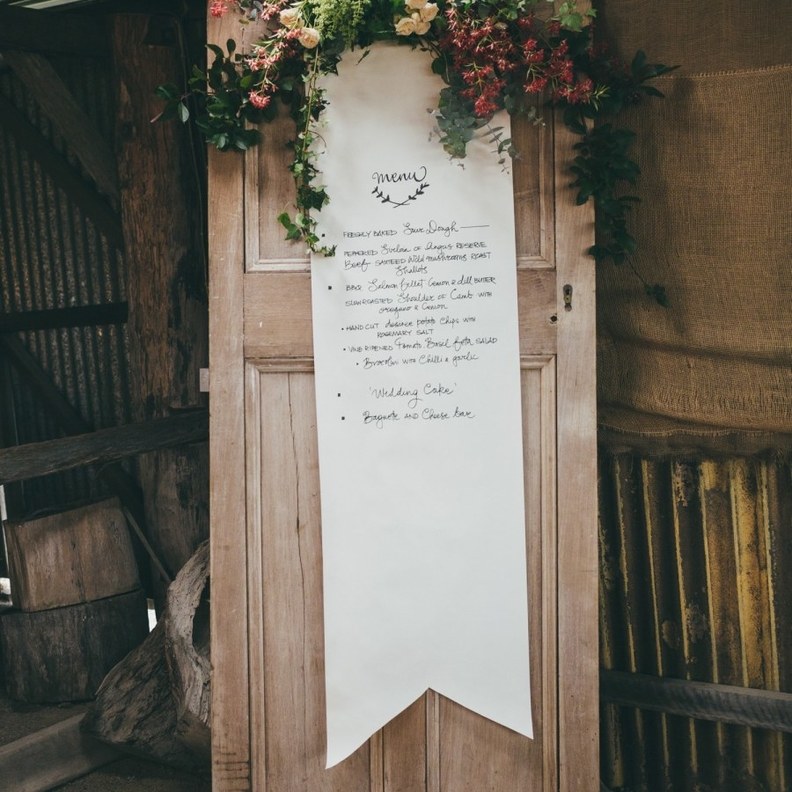 menu
• FRESHLY BAKED Sour Dough
PEPPERED Sirloin OF Angus RESERVE
Beef SAUTEED Wild mushrooms ROAST
Shallots
• BBQ Salmon fillet Lemon & dill BUTTER
SLOW ROASTED Shoulder OF Lamb WITH
oregano & Lemon
• HAND CUT potato chips WITH
ROSEMARY SALT
• VINE RIPENED Tomato Basil feta SALAD
• Broccolini WITH Chilli & garlic
• 'Wedding Cake'
• Baguette AND Cheese bar